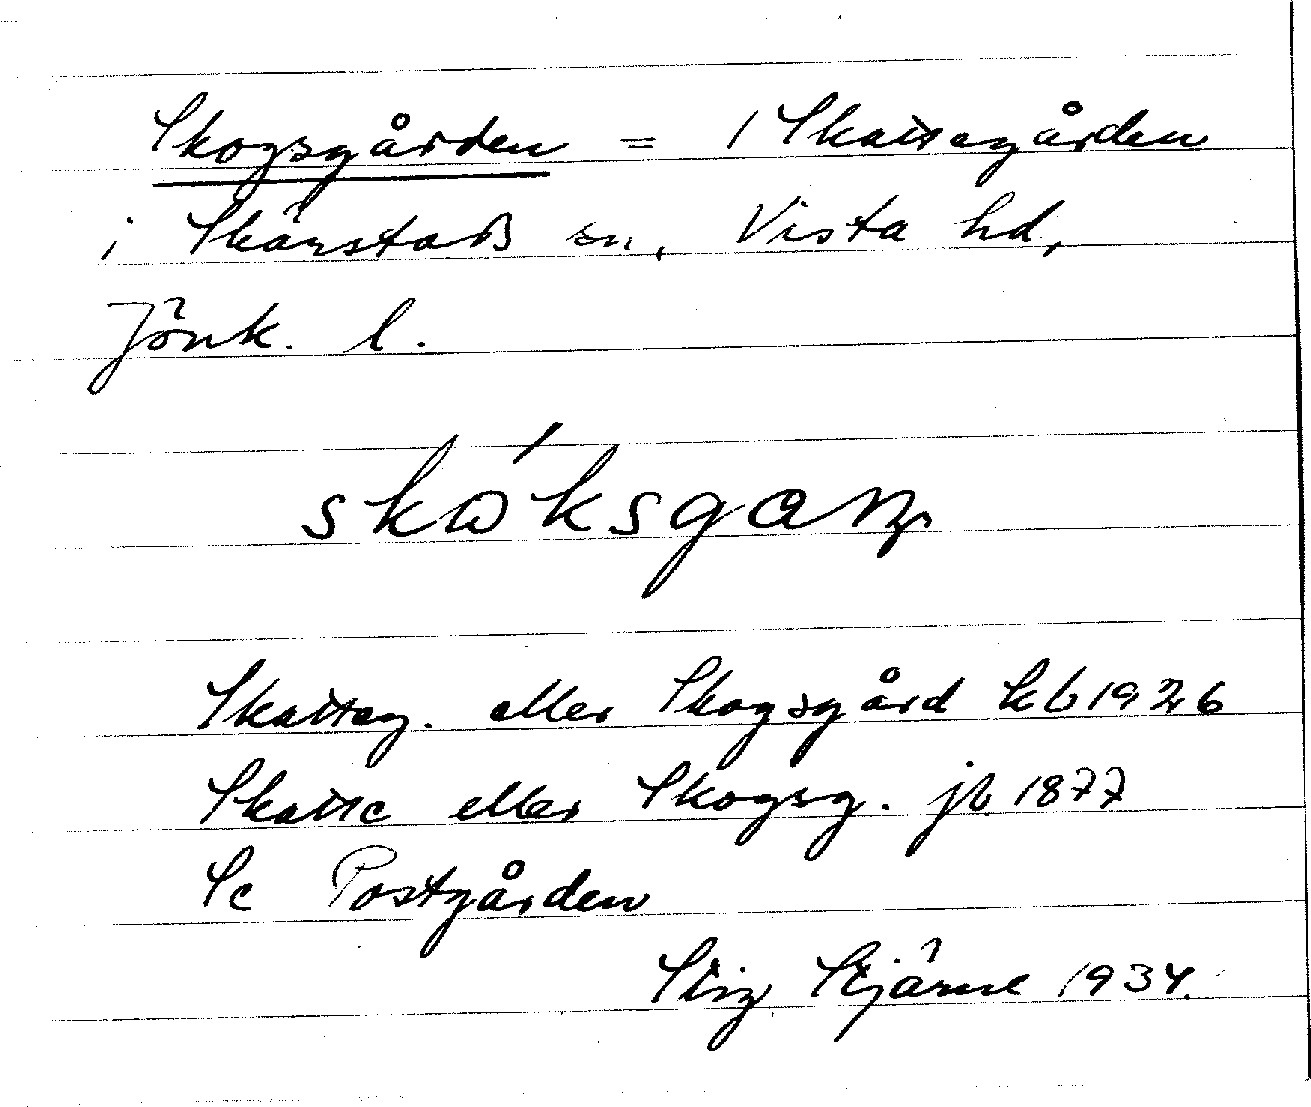 Skogsgården = 1 Skattegården
i Skärstads sn, Vista hd,
Jönk. l.
skɷ́ksgaɲ
Skatteg. eller Skogsgård kb 1926
Skatte eller Skogsg. jb 1877
Se Postgården
Stig Stjärne 1934.